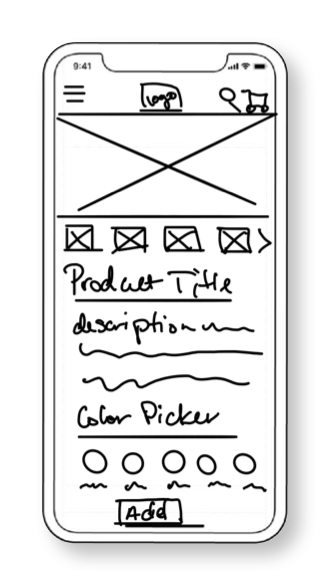 9:41
Logo
Product Title
description
Color Picker
Add